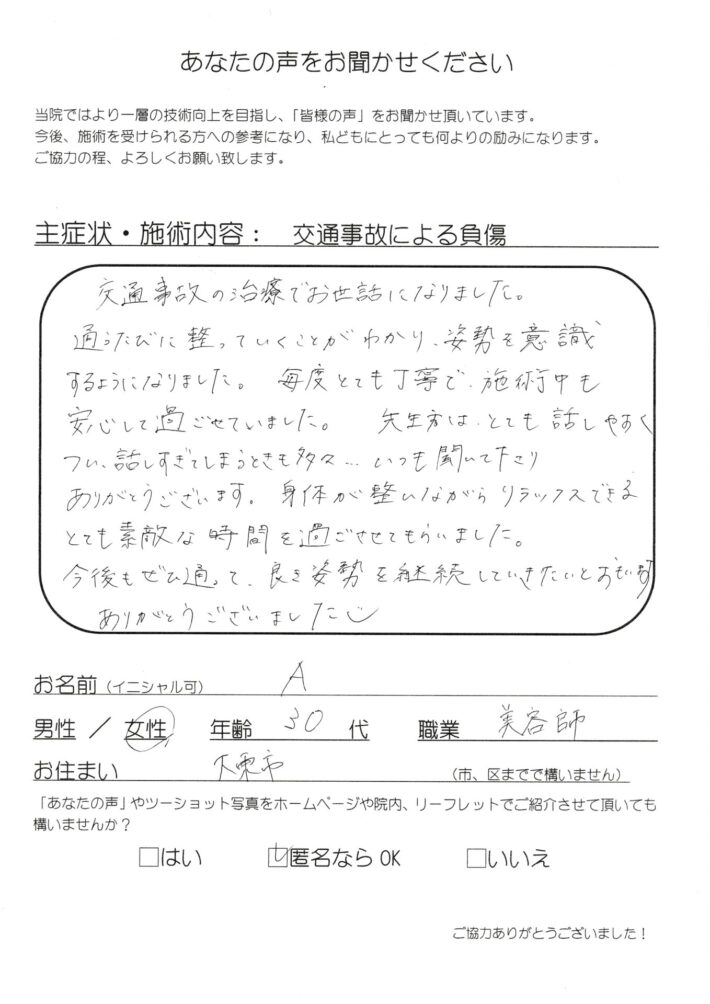 あなたの声をお聞かせください
当院ではより一層の技術向上を目指し、「皆様の声」をお聞かせ頂いています。
今後、施術を受けられる方への参考になり、私どもにとっても何よりの励みになります。
ご協力の程、よろしくお願い致します。
主症状・施術内容： 交通事故による負傷
交通事故の治療でお世話になりました。
通うたびに整っていくことがわかり、姿勢を意識
するようになりました。 毎度とても丁寧で、施術中も
安心して過ごせていました。 先生方は、とても話しやすく
つい、話しすぎてしまうときも多々… いつも聞いて下さり
ありがとうございます。 身体が整いながらリラックスできる
とても素敵な時間を過ごさせてもらいました。
今後もぜひ通って、良き姿勢を継続していきたいとおもいます
ありがとうございました
お名前（イニシャル可） A
男性 ／ 女性 年齢 30 代 職業 美容師
お住まい 大東市 （市、区までで構いません）
「あなたの声」やツーショット写真をホームページや院内、リーフレットでご紹介させて頂いても
構いませんか？
□はい ☑匿名なら OK □いいえ
ご協力ありがとうございました！